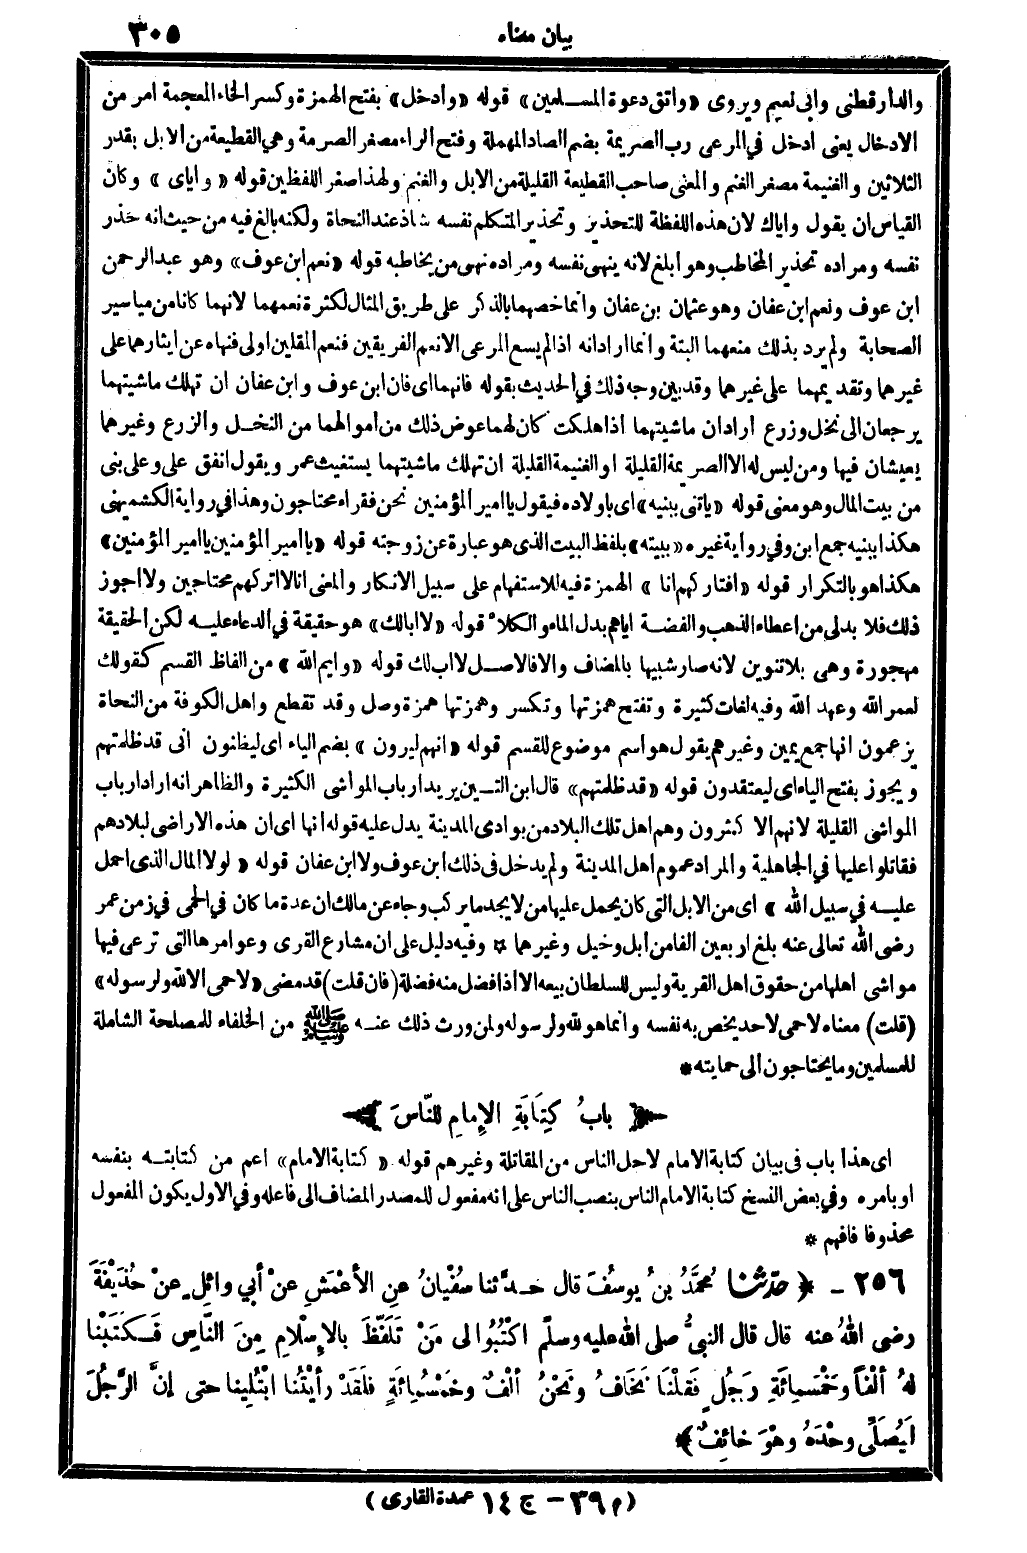 بيان معناه ٣٠٥
والدارقطنى وابى نعيم ويروى «واتق دعوة المسلمين» قوله «وأدخل» بفتح الهمزة وكسر الخاء المعجمة امر من
الادخال يعنى ادخل في المرعى رب الصريمة بضم الصاد المهملة وفتح الراء مصغر الصرمة وهي القطيعة من الابل بقدر
الثلاثين والغنيمة مصغر الغنم والمعنى صاحب القطيعة القليلة من الابل والغنم ولهذا صغر اللفظين قوله «واياى» وكان
القياس ان يقول واياك لان هذه اللفظة للتحذير وتحذير المتكلم نفسه شاذ عند النحاة ولكنه بالغ فيه من حيث انه حذر
نفسه ومراده تحذير المخاطب وهو ابلغ لانه ينهى نفسه ومراده نهى من يخاطبه قوله «نعم ابن عوف» وهو عبد الرحمن
ابن عوف ونعم ابن عفان وهو عثمان بن عفان وانما خصهما بالذكر على طريق المثال لكثرة نعمهما لانهما كانا من مياسير
الصحابة ولم يرد بذلك منعهما البتة وانما اراد انه اذا لم يسع المرعى الا نعم الفريقين فنعم المقلين اولى فنهاه عن ايثارهما على
غيرهما وتقديمهما على غيرهما وقد بين وجه ذلك في الحديث بقوله فانهما اى فان ابن عوف وابن عفان ان تهلك ماشيتهما
يرجعان الى نخل وزرع اراد ان ماشيتهما اذا هلكت كان لهما عوض ذلك من أموالهما من النخل والزرع وغيرهما
يعيشان فيها ومن ليس له الا الصريمة القليلة او الغنيمة القليلة ان تهلك ماشيتهما يستغيث عمر ويقول انفق على وعلى بنى
من بيت المال وهو معنى قوله «يأتنى ببنيه» اى باولاده فيقول يا امير المؤمنين نحن فقراء محتاجون وهذا في رواية الكشميهنى
هكذا ببنيه جمع ابن وفي رواية غيره «ببيته» بلفظ البيت الذى هو عبارة عن زوجته قوله «يا امير المؤمنين يا امير المؤمنين»
هكذا هو بالتكرار قوله «افتاركهم انا» الهمزة فيه للاستفهام على سبيل الانكار والمعنى انا لا اتركهم محتاجين ولا اجوز
ذلك فلا بد لى من اعطاء الذهب والفضة اياهم بدل الماء والكلأ قوله «لا ابالك» هو حقيقة في الدعاء عليه لكن الحقيقة
مهجورة وهى بلا تنوين لانه صار شبيها بالمضاف والا فالاصل لا اب لك قوله «وايم الله» من الفاظ القسم كقولك
لعمر الله وعهد الله وفيه لغات كثيرة وتفتح همزتها وتكسر وهمزتها همزة وصل وقد تقطع واهل الكوفة من النحاة
يزعمون انها جمع يمين وغيرهم يقول هو اسم موضوع للقسم قوله «انهم ليرون» بضم الياء اى ليظنون انى قد ظلمتهم
ويجوز بفتح الياء اى ليعتقدون قوله «قد ظلمتهم» قال ابن التين يريد ارباب المواشى الكثيرة والظاهر انه اراد ارباب
المواشى القليلة لانهم الاكثرون وهم اهل تلك البلاد من بوادى المدينة يدل عليه قوله انها اى ان هذه الاراضى لبلادهم
فقاتلوا عليها في الجاهلية والمراد عموم اهل المدينة ولم يدخل في ذلك ابن عوف ولا ابن عفان قوله «لولا المال الذى احمل
عليه في سبيل الله» اى من الابل التى كان يحمل عليها من لا يجد ما يركب وجاء عن مالك ان عدة ما كان في الحمى في زمن عمر
رضى الله تعالى عنه بلغ اربعين الفا من ابل وخيل وغيرهما * وفيه دليل على ان مشارع القرى وعوامرها التى ترعى فيها
مواشى اهلها من حقوق اهل القرية وليس للسلطان بيعه الا اذا فضل منه فضلة (فان قلت) قد مضى «لا حمى الا لله ولرسوله»
(قلت) معناه لا حمى لاحد يخص به نفسه وانما هو لله ولرسوله ولمن ورث ذلك عنه ﷺ من الخلفاء للمصلحة الشاملة
للمسلمين وما يحتاجون الى حمايته *
﴿ بابُ كِتابَةِ الإِمامِ لِلنَّاسَ ﴾
اى هذا باب في بيان كتابة الامام لاجل الناس من المقاتلة وغيرهم قوله «كتابة الامام» اعم من كتابته بنفسه
او بامره وفي بعض النسخ كتابة الامام الناس بنصب الناس على انه مفعول للمصدر المضاف الى فاعله وفي الاول يكون المفعول
محذوفا فافهم *
٢٥٦ - ﴿ حدّثنا مُحَمَّدُ بنُ يوسُفَ قال حدَّثنا سُفْيانُ عنِ الأعْمَشِ عنْ أبي وائِلٍ عنْ حُذَيْفَةَ
رضى اللهُ عنه قال قال النبىُّ صلى الله عليه وسلّم اكْتُبُوا لى مَنْ تَلَفَّظَ بالإِسْلامِ مِنَ النَّاسِ فَكَتَبْنا
لهُ ألْفًا وخَمْسَمِائَةِ رَجُلٍ فَقلْنَا نَخَافُ ونَحْنُ ألْفٌ وخَمْسُمِائَةٍ فلَقَدْ رأيْتُنا ابْتُلِينا حتى إنَّ الرَّجُلَ
لَيُصَلِّى وحْدَهُ وهْوَ خائِفٌ ﴾
(م ٣٩ – ج ١٤ عمدة القارى)